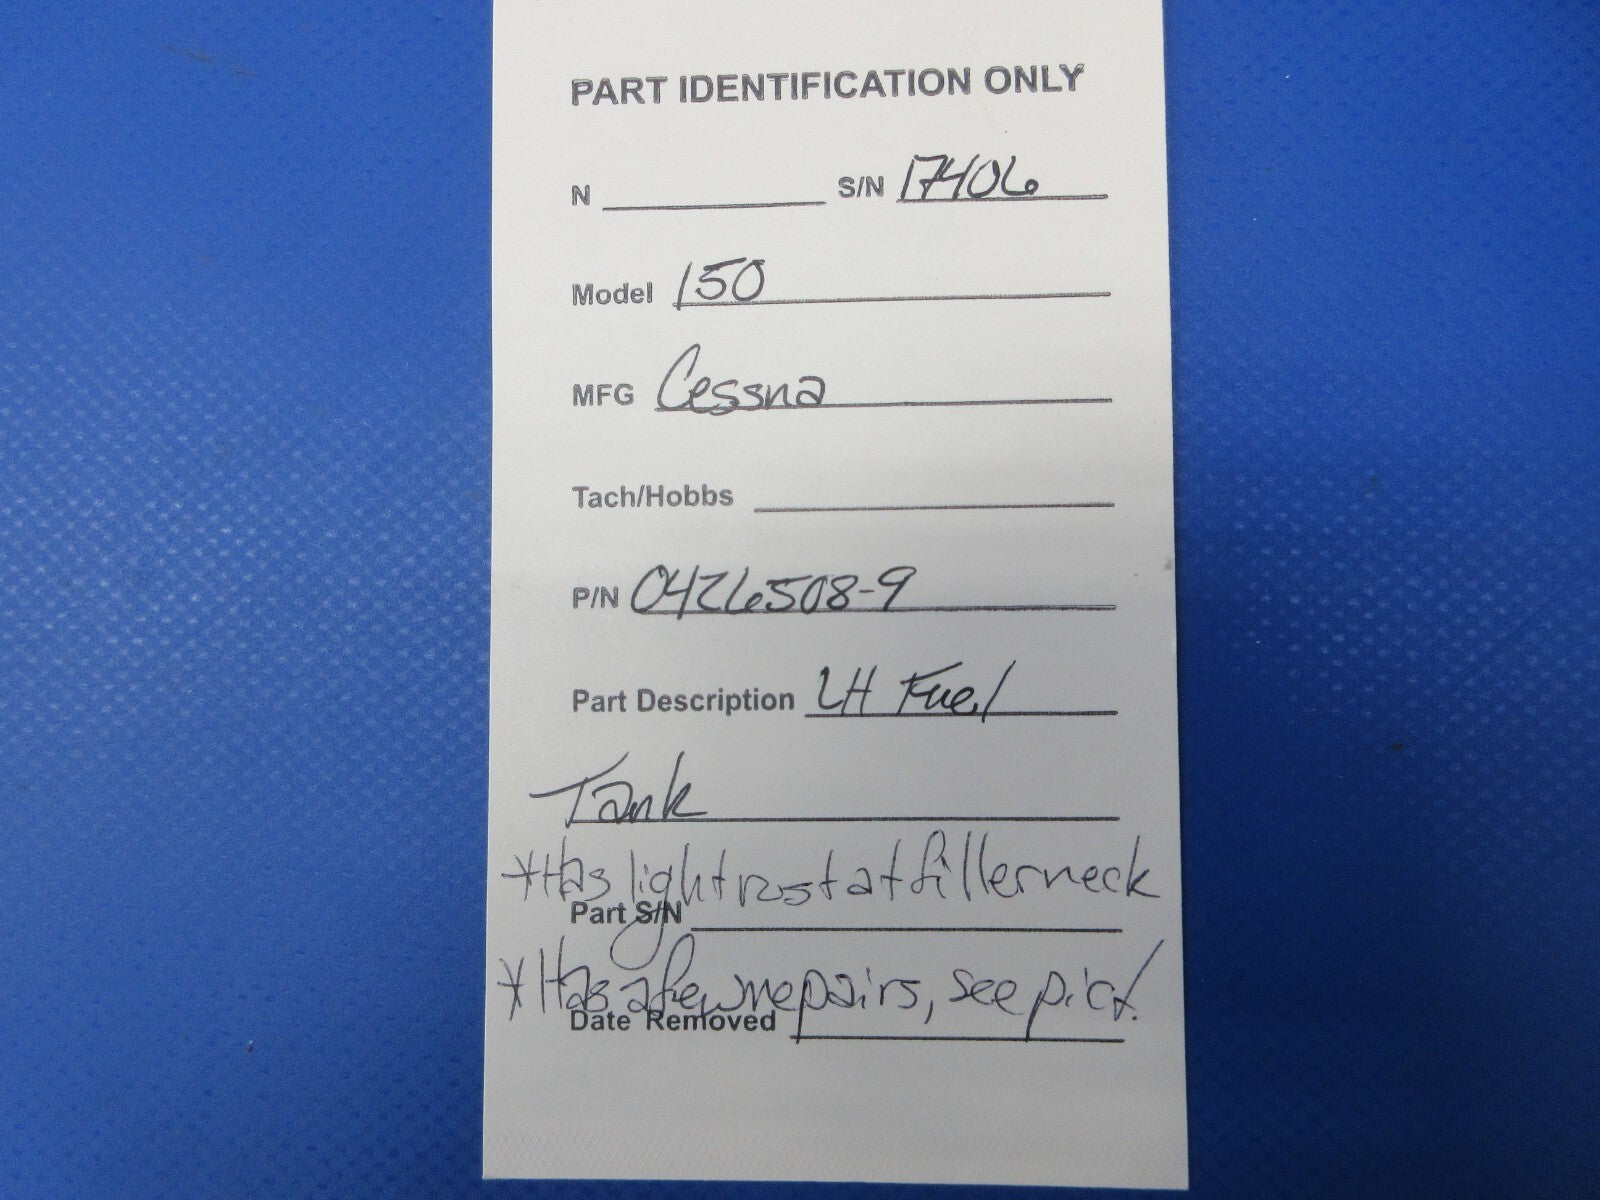 PART IDENTIFICATION ONLY
N S/N 17406
Model 150
MFG Cessna
Tach/Hobbs
P/N 0426508-9
Part Description LH Fuel
Tank
*Has light rust at filler neck
Part S/N
*Has a few repairs, see pict.
Date Removed